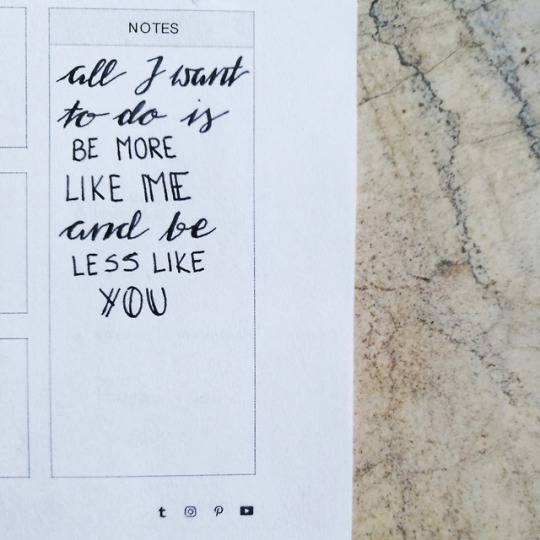 NOTES
all I want
to do is
BE MORE
LIKE ME
and be
LESS LIKE
YOU